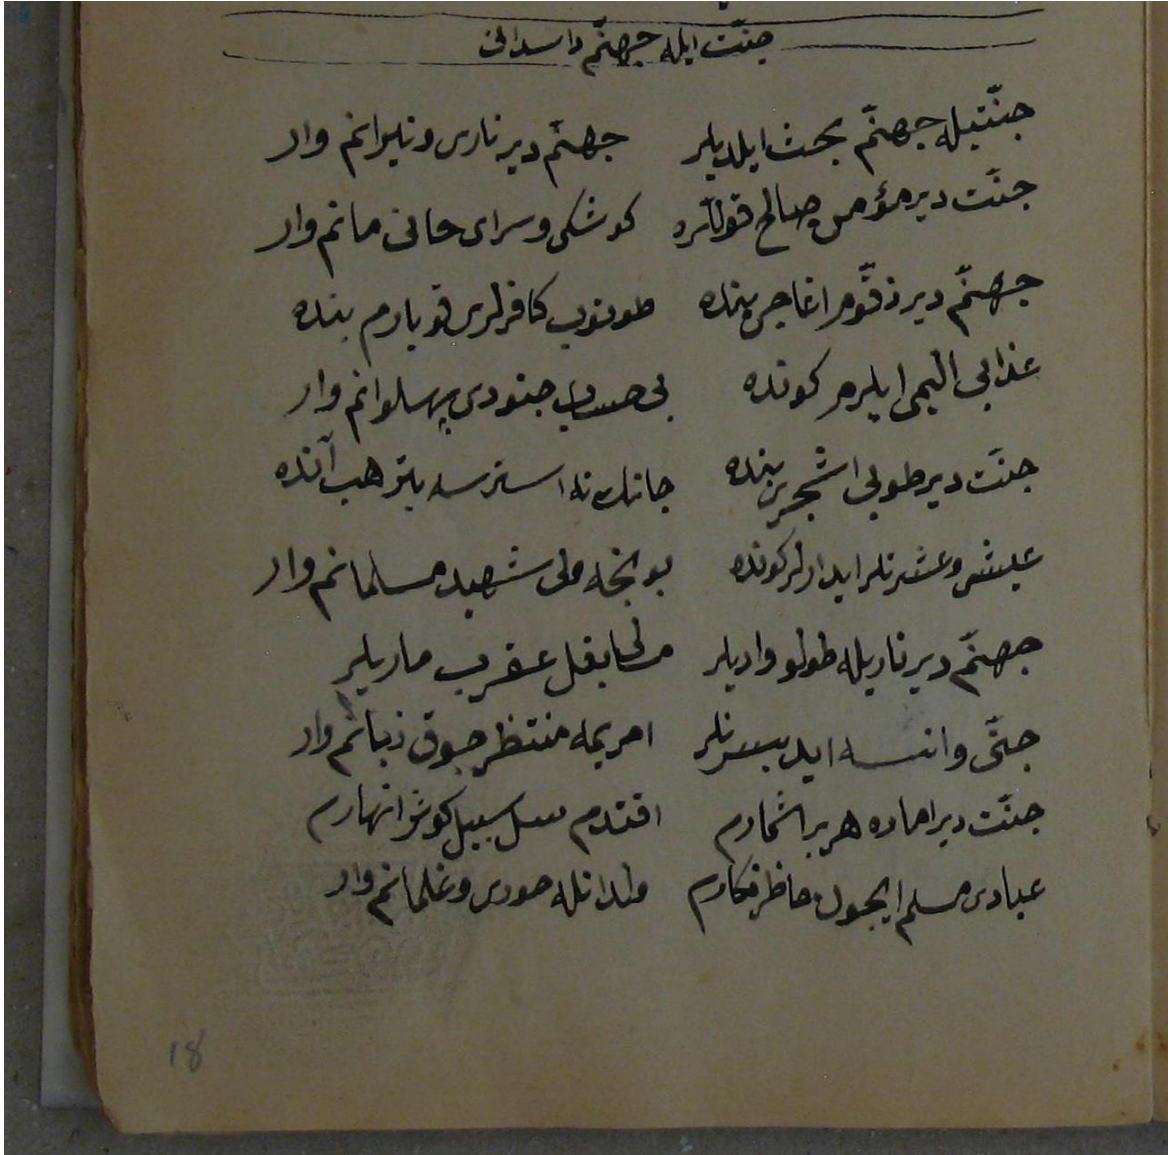 جنّت ايله جهنّم داستانی
جنّتيله جهنّم بحث ايلديلر جهنّم دير ناری و نيرانم وار
جنّت دير مؤمن صالح قوللره كوشكی و سرای خانی مانم وار
جهنّم دير زقّوم اغاجی بنده طوتوب كافرلری قويارم بنده
عذابی اليمی ايلرم كونده بی حساب جنودی پهلوانم وار
جنّت دير طوبی اشجری بنده جانك نه استرسه بتر هب آنده
عيش و عشرتلر ايدرلر كونده بونجه ولی شهيد مسلمانم وار
جهنّم دير ناريله طولو واديلر عقرب ماريلر
جنّی و انسه ايدر امريمه منتظر چوق زبانم وار
جنّت دير اماده هر بر اثمارم اقتدم سلسبيل كوثر انهارم
عبادی مسلم ايچون حاظر ولدانله حوری و غلمانم وار
18